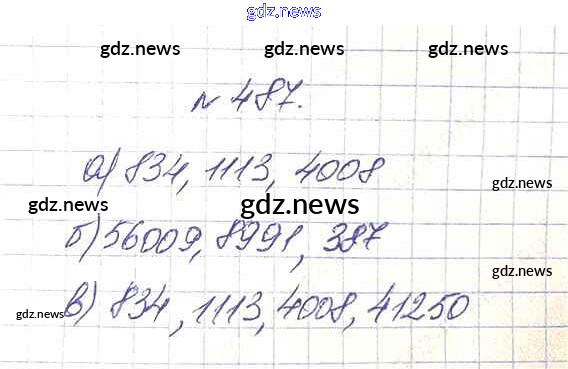 gdz.news
gdz.news gdz.news gdz.news
№ 487.
а) 834, 1113, 4008
gdz.news
gdz.news gdz.news
б) 56009, 8991, 387
gdz.news
в) 834, 1113, 4008, 41250
gdz.news